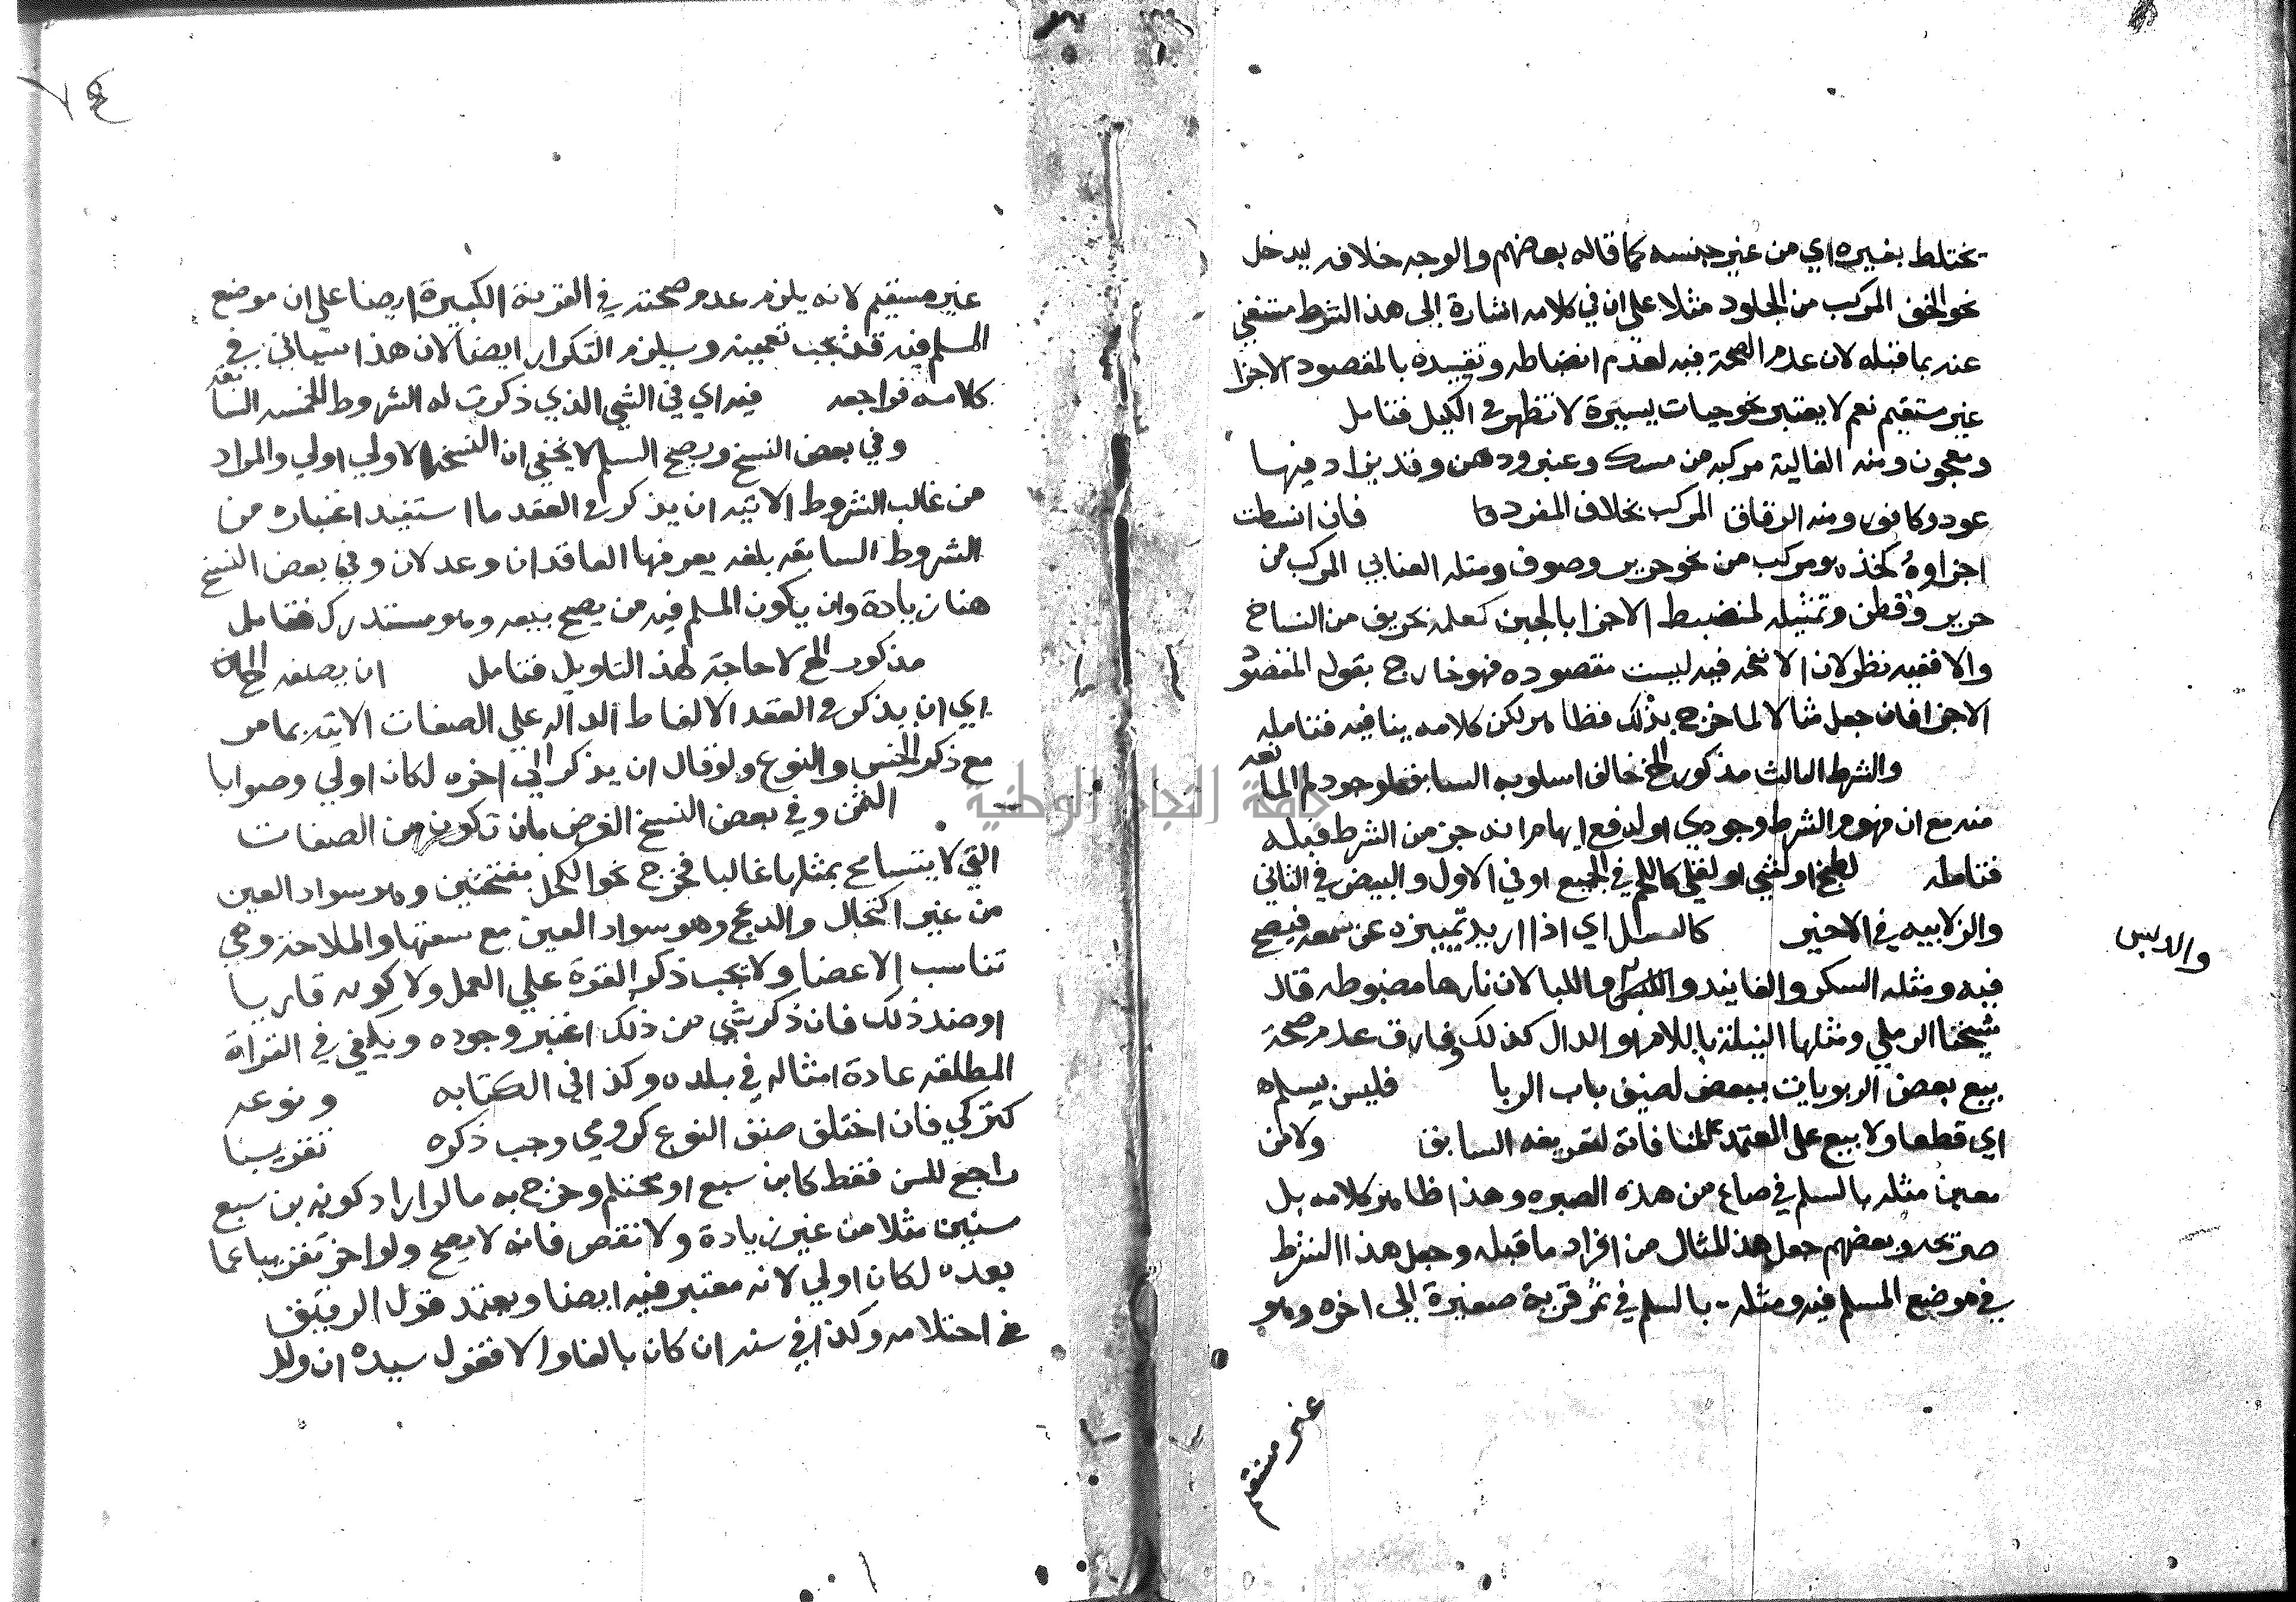 يختلط بغيره اي من غير جنسه كما قاله بعضهم والوجه خلافه ليدخل
نحو الخف المركب من الجلود مثلا علي ان في كلامه اشارة الى هذا الشرط مستغني
عنه بما قبله لان عدم الصحة فيه لعدم انضباطه وتقييده بالمقصود الاجزا
غير مستقيم نعم لا يعتبر نحو حبات يسيرة لا تظهر في الكيل فتامل
ومعجون ومنه الغالية مركبه من مسك وعنبر ودهن وقد يزاد فيها
عود وكافور ومنه الرقاق المركب بخلاف المفرد فان انضبطت
اجزاوه كخذ ومركب من نحو حرير وصوف ومثله العتابي المركب من
حرير وقطن وتمثيله لمنضبط الاجزا بالجبن تحريف من النساخ
والا ففيه نظر لان الانفحه فيه ليست مقصوده فهو خارج بقوله المقصود
الاجزا فان جعل مثالا لما خرج بذلك فظاهر لكن كلامه ينافيه فتامله
والشرط الثالث مذكور الخ خالف اسلوبه السابق لوجود لم المانعه
منه مع ان مفهوم الشرط وجودي او لدفع ايهام انه جز من الشرط قبله
فتامله لطبخ او لشي او لقلي كاللحم في الجميع او في الاول والبيض في الثاني
والزلابيه في الاخير كالعسل اي اذا اريد تمييزه عن شمعه فيصح
والدبس
فيه ومثله السكر والفانيد واللبا لان نارها مضبوطه قال
شيخنا الرملي ومثلها النيلة باللام والدال كذلك وفارق عدم صحة
بيع بعض الربويات ببعض لضيق باب الربا فليس بسلم
اي قطعا ولا بيع على المعتمد لمنافاة لتعريفه السابق ولا من
معين مثله بالسلم في صاع من هذه الصبره وهذا ظاهر كلامه بل
صريحه وبعضهم جعل هذا المثال من افراد ما قبله وجعل هذا الشرط
في موضع المسلم فيه ومثله بالسلم في ثمر قرية صغيرة الى اخره وهو
غير مستقيم
٧٤
غير مستقيم لانه يلزم عدم صحته في القرية الكبيرة ايضا علي ان موضع
المسلم فيه قد يجب تعيينه ويلزم التكرار ايضا لان هذا سياتي في
كلامه فراجعه فيه اي في الشي الذي ذكرت له الشروط الخمسه السابقه
وفي بعض النسخ ويصح السلم لا يخفي ان النسخه الاولي اولي والمراد
من غالب الشروط الاتيه ان يذكر في العقد ما استفيد اعتباره من
الشروط السابقه بلغه يعرفها العاقدان وعدلان وفي بعض النسخ
هنا زيادة وان يكون المسلم فيه من يصح بيعه وهو مستدرك فتامل
مذكور الخ لا حاجة لهذا التاويل فتامل ان يصفه الخ
اي ان يذكر في العقد الالفاظ الداله علي الصفات الاتيه بما مر
مع ذكر الجنس والنوع ولو قال ان يذكر الي اخره لكان اولي وصوابا
الثمن وفي بعض النسخ الغرض بان تكون من الصفات
التي لا يتسامح بمثلها غالبا فخرج نحو الكحل بفتحتين وهو سواد العين
من غير اكتحال والدعج وهو سواد العين مع سعتها والملاحة وهي
تناسب الاعضا ولا يجب ذكر القوة علي العمل ولا كونه قاريا
او ضد ذلك فان ذكر شي من ذلك اعتبر وجوده ويكفي في القراة
المطلقه عادة امثاله في بلده وكذا في الكتابه ونوعه
كتركي فان اختلف صنف النوع كرومي وجب ذكره تقريبا
راجع للسن فقط كابن سبع او محتلم وخرج به ما لو اراد كونه بن سبع
سنين مثلا من غير زيادة ولا نقص فانه لا يصح ولو اخر تقريبا عما
بعده لكان اولي لانه معتبر فيه ايضا ويعتمد قول الرقيق
في احتلامه وكذا في سنه ان كان بالغا والا فقول سيده ان ولد